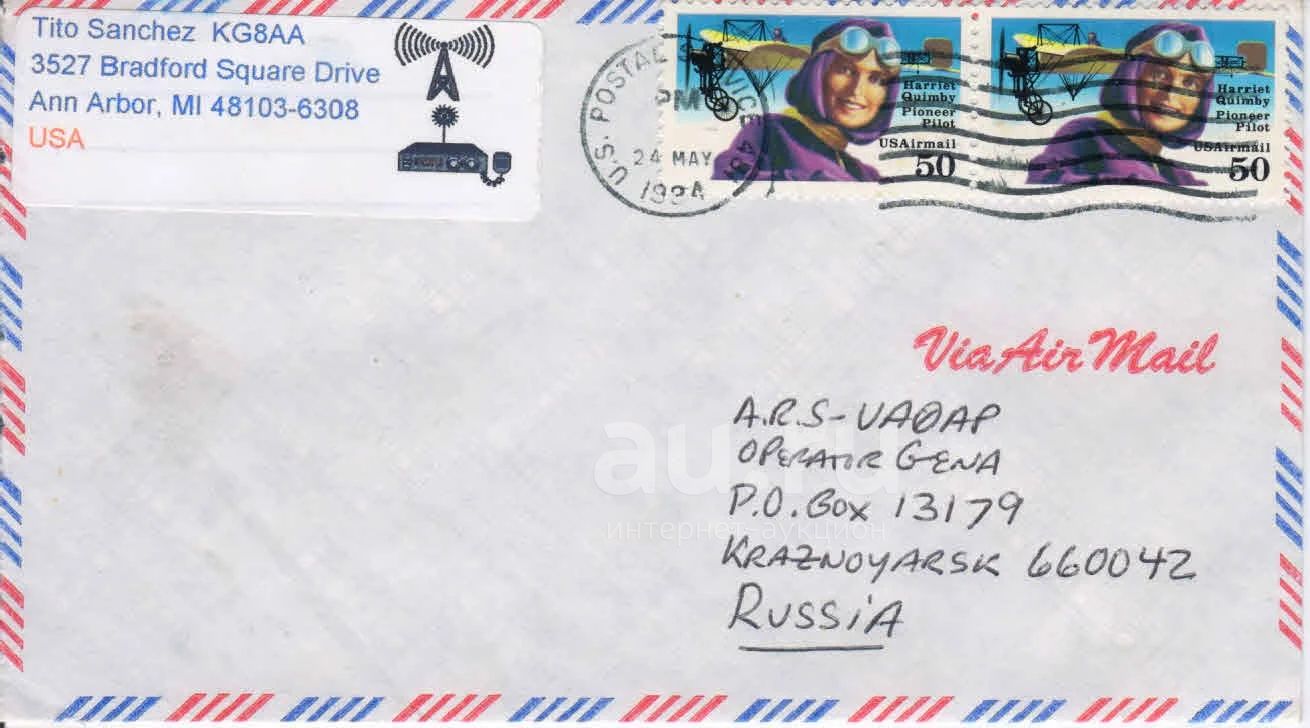 Tito Sanchez KG8AA
3527 Bradford Square Drive
Ann Arbor, MI 48103-6308
USA
U.S. POSTAL SERVICE
PM
24 MAY
1994
Harriet
Quimby
Pioneer
Pilot
USAirmail
50
Harriet
Quimby
Pioneer
Pilot
USAirmail
50
Via Air Mail
A.R.S-UAØAP
OPERATOR GENA
P.O. Box 13179
KRAZNOYARSK 660042
RUSSIA
au.ru
интернет-аукцион